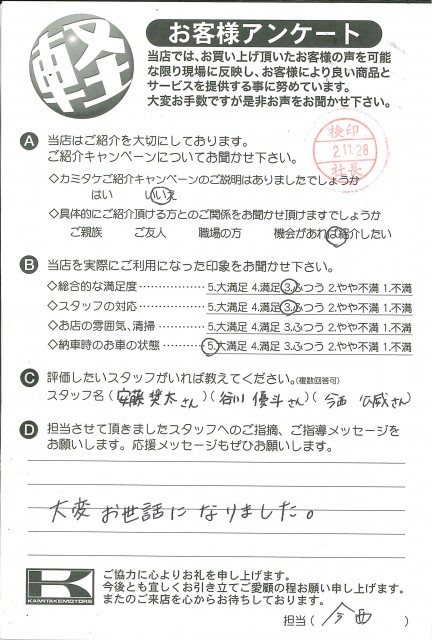 軽
お客様アンケート
当店では、お買い上げ頂いたお客様の声を可能
な限り現場に反映し、お客様により良い商品と
サービスを提供する事に努めています。
大変お手数ですが是非お声をお聞かせ下さい。
検印
2.11.28
社長
A 当店はご紹介を大切にしております。
ご紹介キャンペーンについてお聞かせ下さい。
◇カミタケご紹介キャンペーンのご説明はありましたでしょうか
はい いいえ
◇具体的にご紹介頂ける方とのご関係をお聞かせ頂けますでしょうか
ご親族 ご友人 職場の方 機会があれば紹介したい
B 当店を実際にご利用になった印象をお聞かせ下さい。
◇総合的な満足度 5.大満足 4.満足 3.ふつう 2.やや不満 1.不満
◇スタッフの対応 5.大満足 4.満足 3.ふつう 2.やや不満 1.不満
◇お店の雰囲気、清掃 5.大満足 4.満足 3.ふつう 2.やや不満 1.不満
◇納車時のお車の状態 5.大満足 4.満足 3.ふつう 2.やや不満 1.不満
C 評価したいスタッフがいれば教えてください。(複数回答可)
スタッフ名 (安藤 奨太さん)(谷川 優斗さん)(今西 公威さん
D 担当させて頂きましたスタッフへのご指摘、ご指導メッセージを
お願いします。応援メッセージもぜひお願いします。
大変お世話になりました。
KAMITAKEMOTORS
ご協力に心よりお礼を申し上げます。
今後とも宜しくお引き立てご愛顧の程お願い申し上げます。
またのご来店を心からお待ちしております。
担当 ( 今西 )